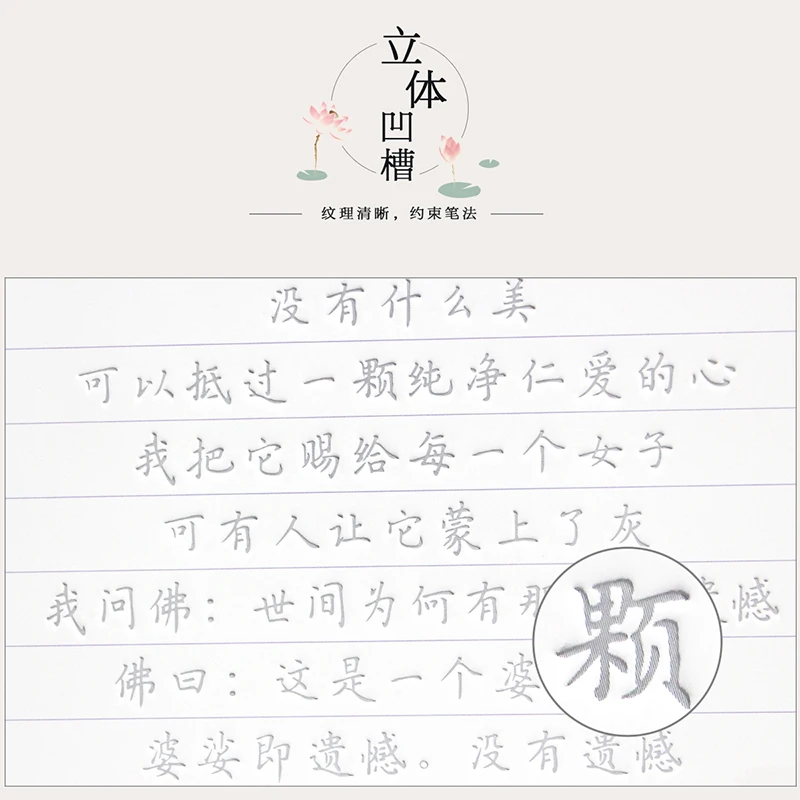 立体凹槽
纹理清晰，约束笔法
没有什么美
可以抵过一颗纯净仁爱的心
我把它赐给每一个女子
可有人让它蒙上了灰
我问佛：世间为何有那 憾
佛曰：这是一个婆
颗
婆娑即遗憾。没有遗憾